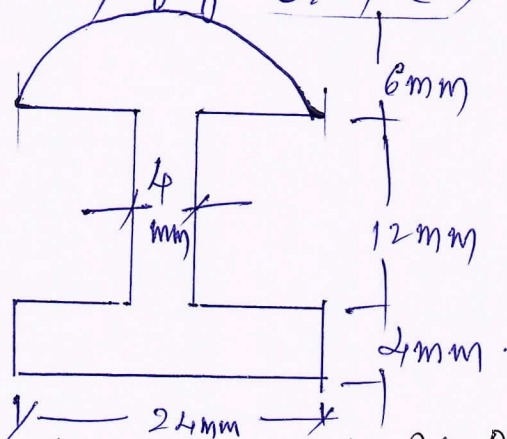 6mm
4
mm
12mm
4mm
24mm